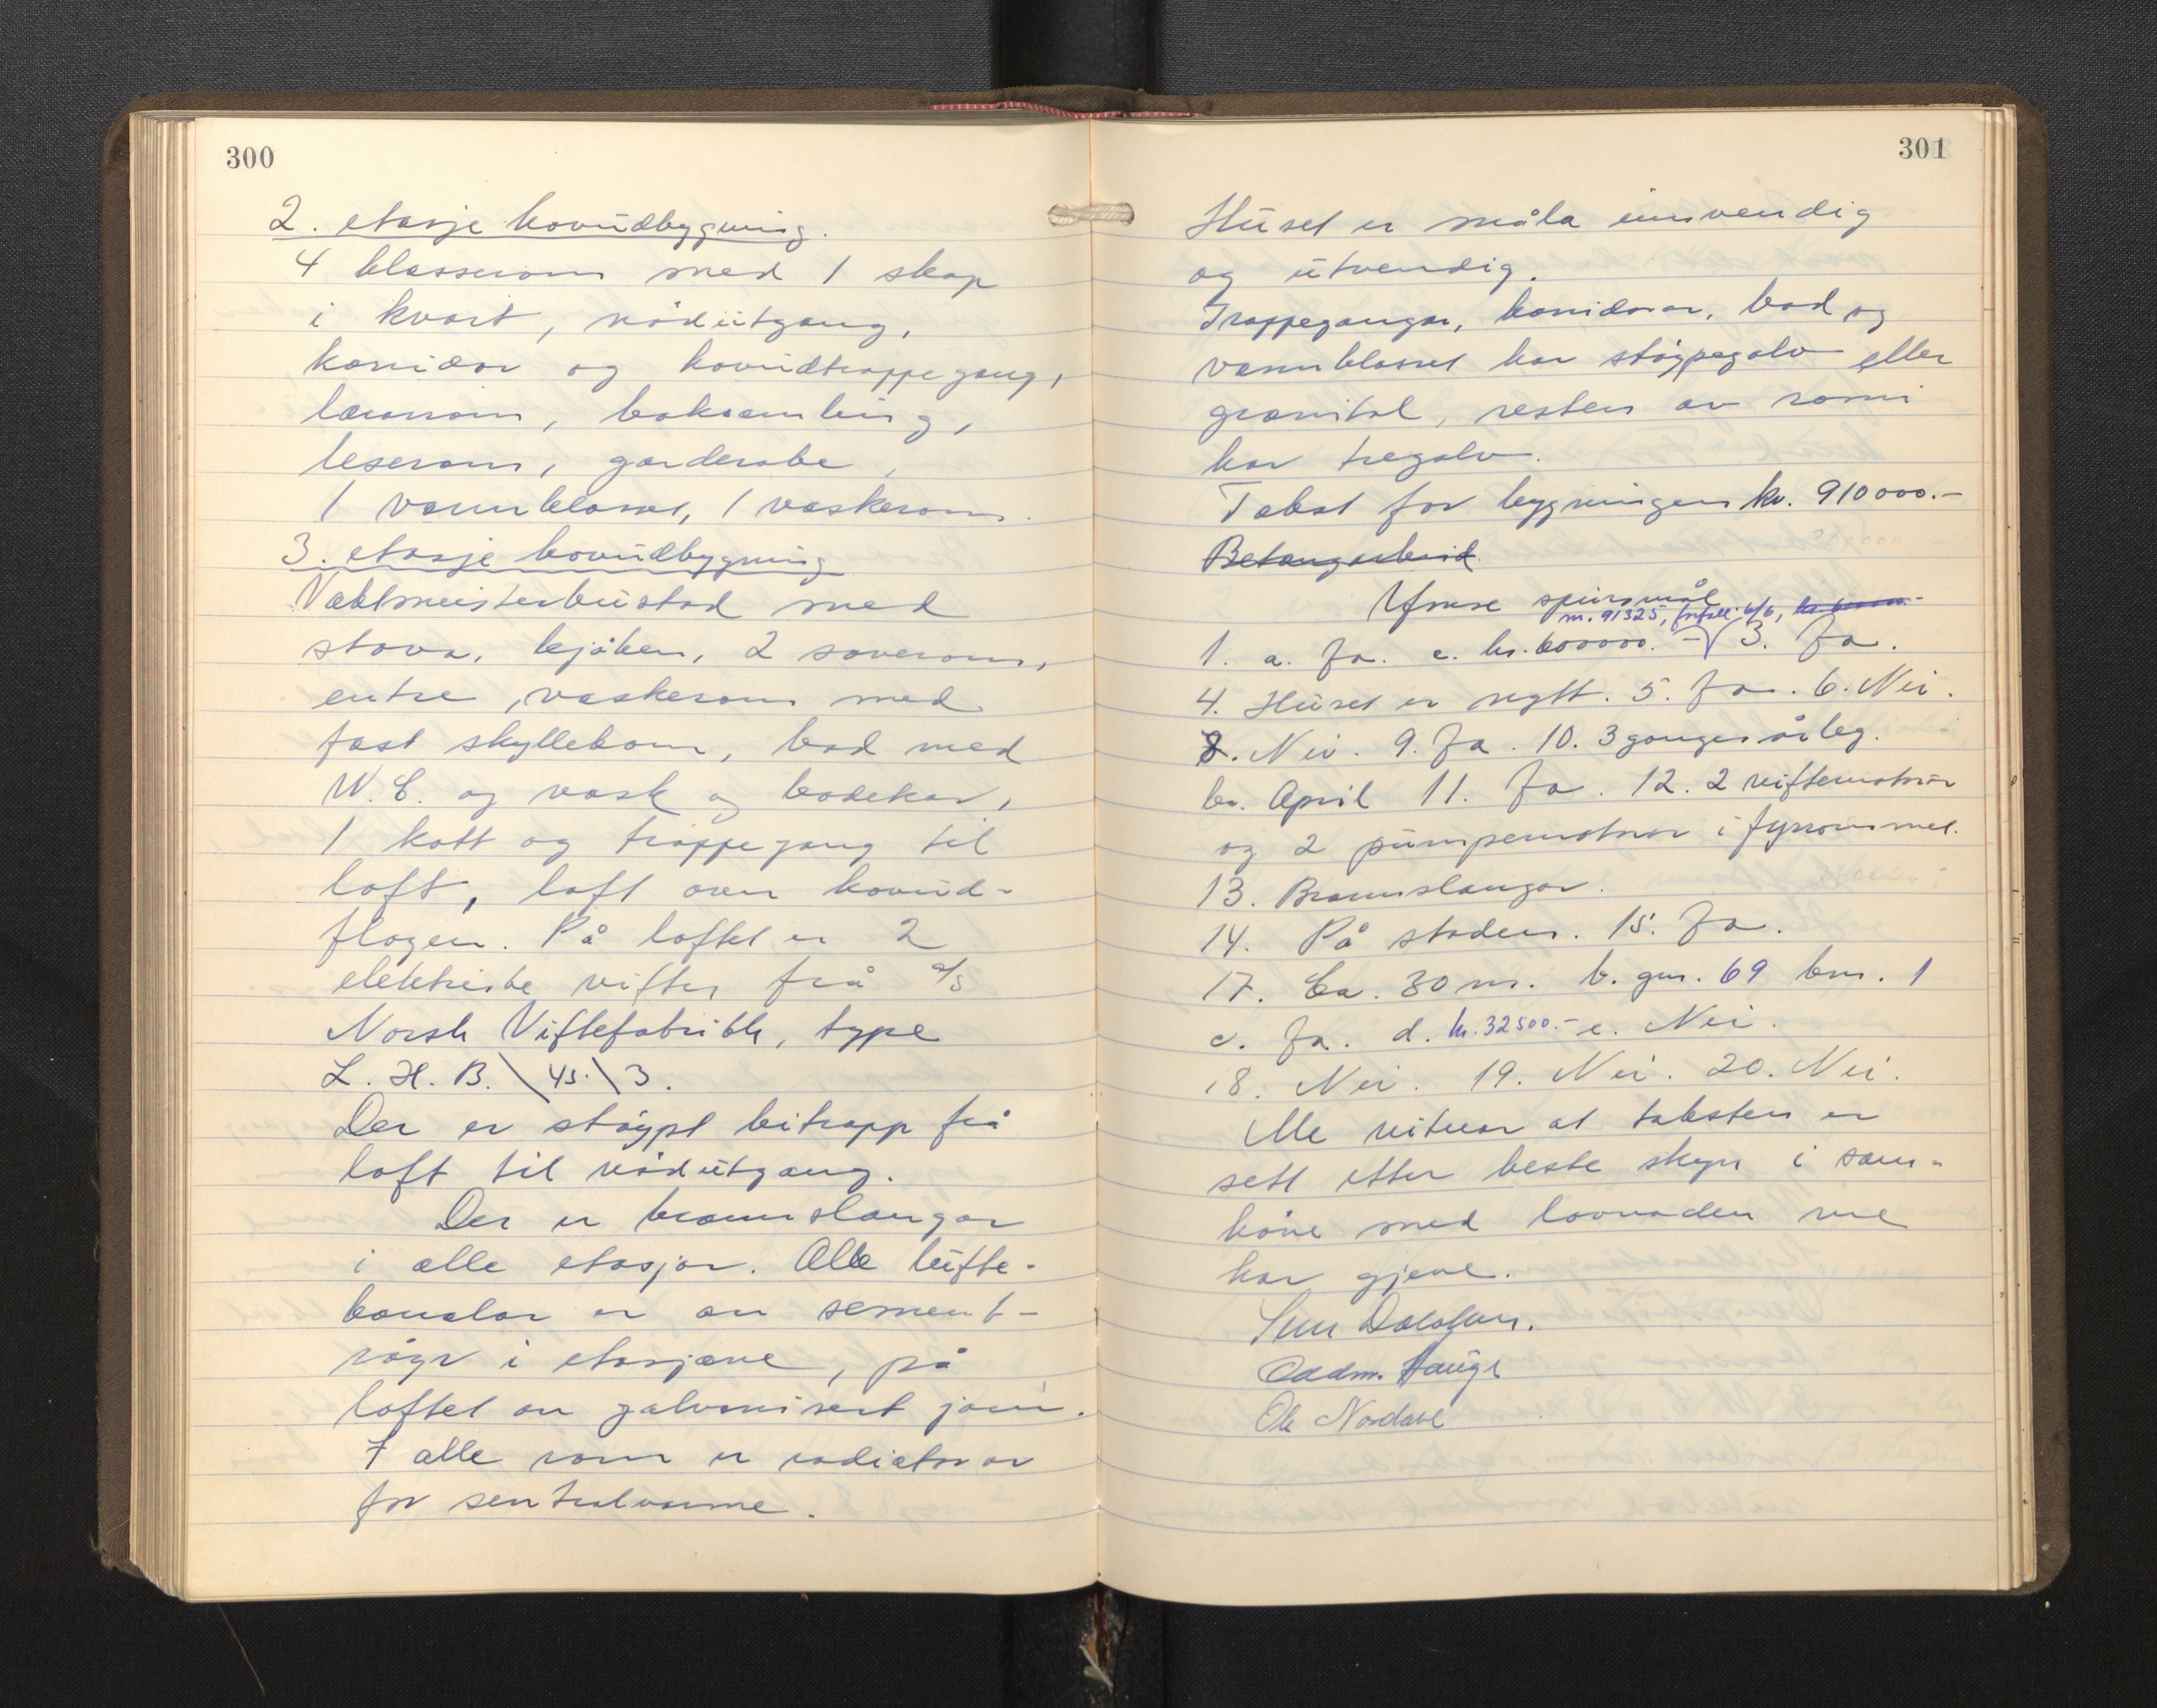 300
2. etasje hovudbygning.
4 klasserom med 1 skap
i kvart, nödutgang,
korridor og hovudtrappegang,
lærarrom, boksamling,
leserom, garderobe,
1 vannklosset, 1 vaskerom.
3. etasje hovudbygning
Vaktmeisterbustad med
stova, kjöken, 2 soverom,
entre, vaskerom med
fast skyllekum, bad med
W.C. og vask og badekar,
1 kott og trappegang til
loft, loft over hovud-
flogen. På loftet er 2
elektriske vifter frå a/s
Norsk Viftefabrikk, type
L. H. B. \ 45. \ 3.
Der er stöypt leitrapp frå
loft til nödutgang.
Der er brannslangar
i alle etasjar. Alle lufte-
kanalar er av sement-
röyr i etasjane, på
loftet av galvanisert jarn.
I alle rom er radiatorar
for sentralvarme.
301
Huset er måla innvendig
og utvendig.
Trappegangar, korridorar, bad og
vannklosset har stöypegolv eller
granitol, resten av romi
har tregolv.
Takst for bygningen kr. 910000.-
Betongarbeid.
Ymse spursmål
nr. 91325, forfall 6/6, kr 600000.-
1. a. Ja. c. kr. 600000.- 3. Ja.
4. Huset er nytt. 5. Ja. 6. Nei.
8. Nei. 9. Ja. 10. 3 gonger årleg.
ca. April 11. Ja. 12. 2 viftemotorar
og 2 pumpemotorar i fyrrommet.
13. Brannslangar.
14. På staden. 15. Ja.
17. Ca. 30 m. b. gnr. 69 bnr. 1
c. Ja. d. kr. 32500.- e. Nei.
18. Nei. 19. Nei. 20. Nei.
Me vitnar at taksten er
sett etter beste skyn i sam-
höve med lovnaden me
har gjeve.
Oddm. Hauge
Ole Nordal